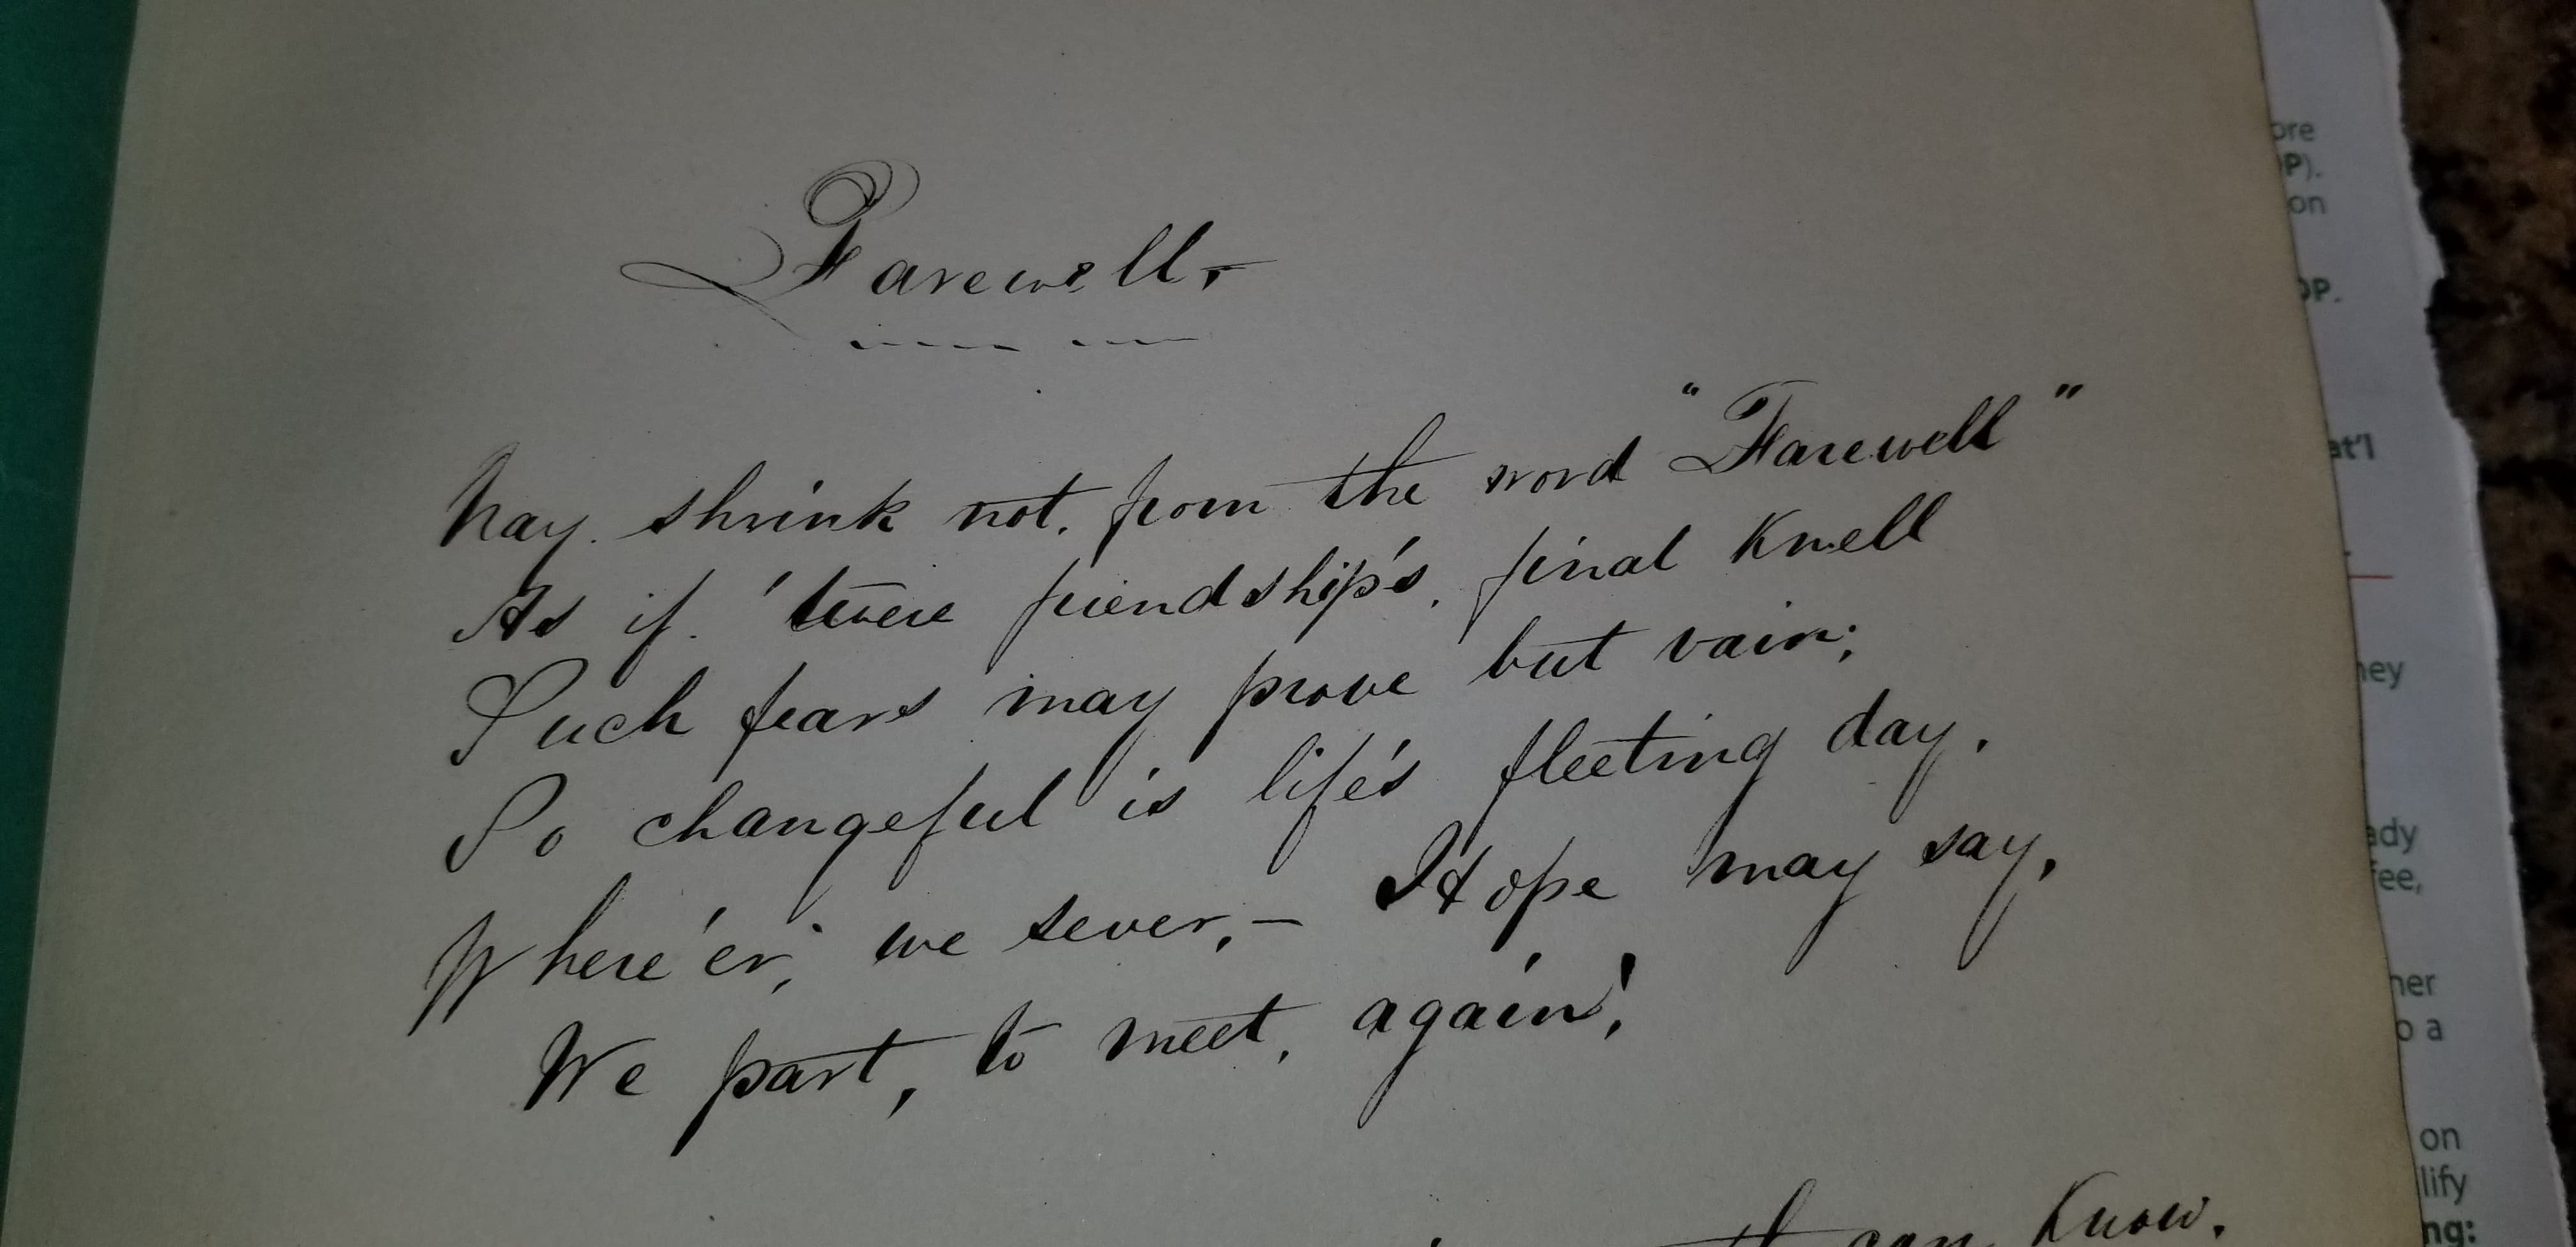 Farewell,-
Nay. shrink not. from the word "Farewell"
As if. 'twere friendship's. final Knell
Such fears may prove but vain;
So changeful is life's fleeting day.
Where'er, we sever,- Hope may say,
We part, to meet, again!
can Know.
ore
P).
on
OP.
at'l
hey
ady
fee,
her
o a
on
lify
ng: